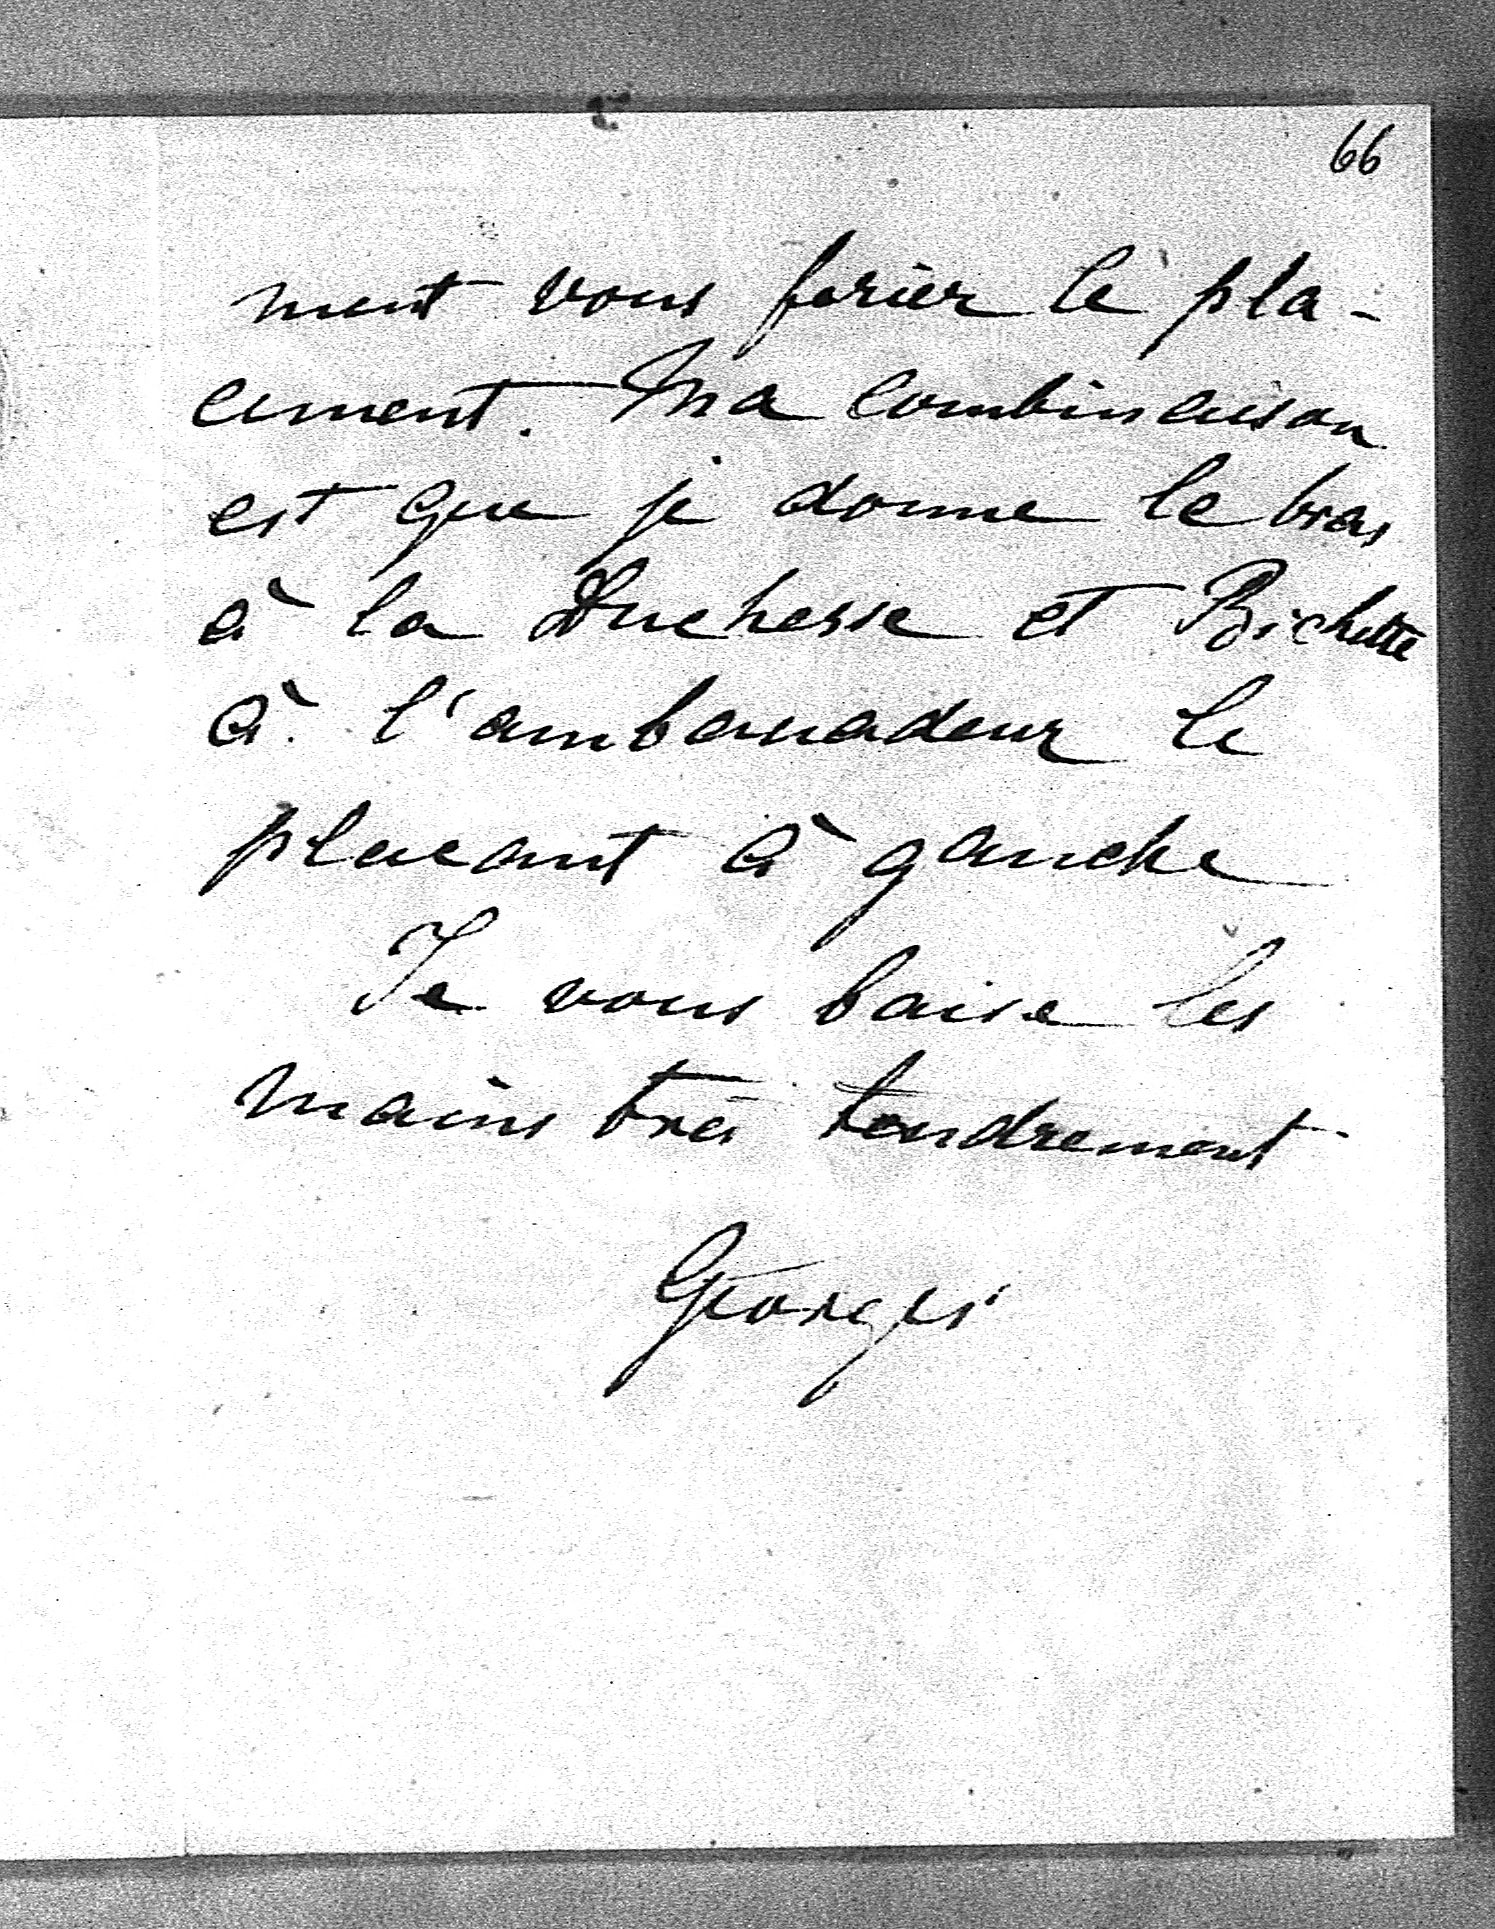 66
ment vous fixer le pla-
cement. Ma combinaison
est que je donne le bras
à la Duchesse et Bichette
à l'ambassadeur le
placant à gauche
Je vous baise les
mains très tendrement
Georges